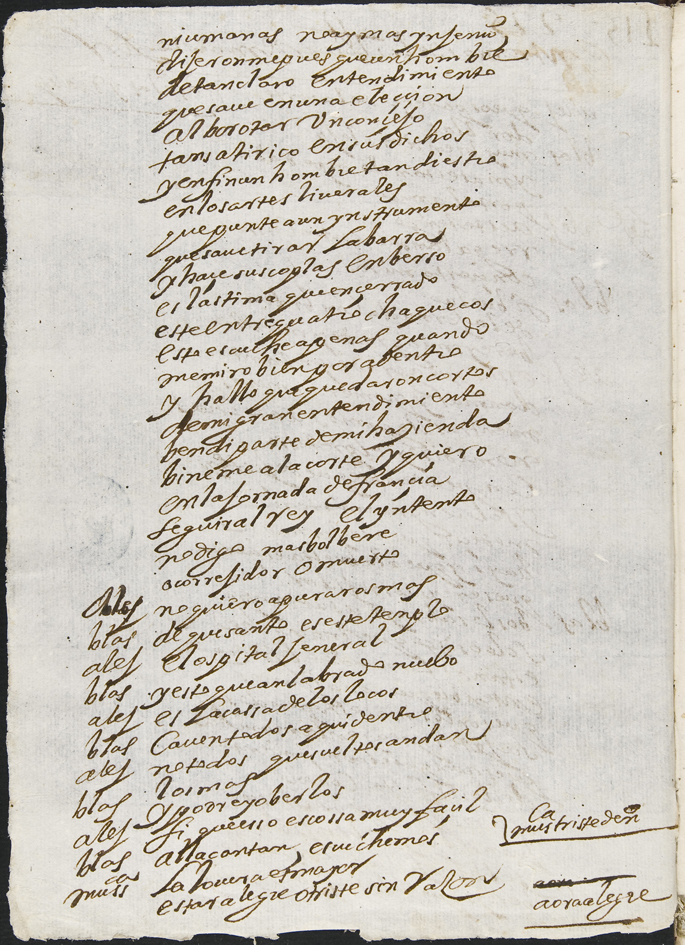 ni umanas no ay mas ynjenio
dijeronme pues que un hombre
de tan claro entendimiento
que save en una eleccion
alborotar Un concejo
tan satirico en sus dichos
y en fin un hombre tan diestro
en los artes liverales
que puntea un ynstrumento
que save tirar la barra
y hace sus coplas en berso
es lastima que encerrado
este entre quatro chaquecos
esto escuche apenas quando
me miro bien por adentro
y hallo que quedaron cortos
de mi gran entendimiento
bendi parte de mi hazienda
bineme a la corte y quiero
en la jornada de francia
seguir al rey el yntento
no digo mas bolbere
o corregidor o muerto
alej no quiero apuraros mas
blas de que santo es este templo
alej el ospital jeneral
blas y esto que an labrado nuebo
alej es la cassa de los locos
blas Caven todos aqui dentro
alej no todos que sueltos andan
los mas
blas y podre yo berlos
alej si que esso es cossa muy facil
blas alla cantan escuchemos
muss cos la locura es mejor
estar alegre o triste sin Valor
Ca
mus triste den
aora alegre